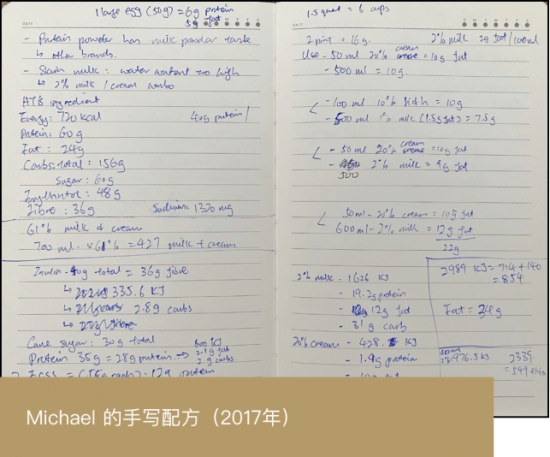 1 large egg (50g) = 6g protein
5g fat
- Protein powder has milk powder taste
↳ other brands.
- milk : water content too high
↳ 2% milk / cream combo
ingredient
Energy: 720 kcal
40g protein/
Protein: 60g
Fat: 24g
Carbs: total: 156g
Sugar: 60g
48g
Fibre: 36g Sodium: 1320 mg
61% milk & cream
700 ml × 61% = 427 milk + cream
Inulin - 40g total = 36g fibre
↳ 335.6 KJ
↳ 2.8g carbs
Cane sugar: 30g total
600 KJ
Protein 35g = 28g protein →
2.1g fat
2g carbs
12g protein
1.5 quart = 6 cups
2% milk 2g fat / 100ml
50 ml 20% cream = 10g fat
- 500 ml = 10g
- 100 ml 10% = 10g
- 500 ml 1% milk (1.5g fat) = 7.5g
- 50 ml 20% cream = 10g fat
- 500 2% milk = 9g fat
50ml - 20% cream = 10g fat
600ml - 2% milk = 12g fat
22g
2% milk - 1626 KJ
- 19.2g protein
- 12g fat
- 31g carb
20% cream - 428 KJ
- 1.9g protein
- 10g fat
2989 KJ = 714 + 140
= 854
Fat = 24g
2339
Michael 的手写配方（2017年）